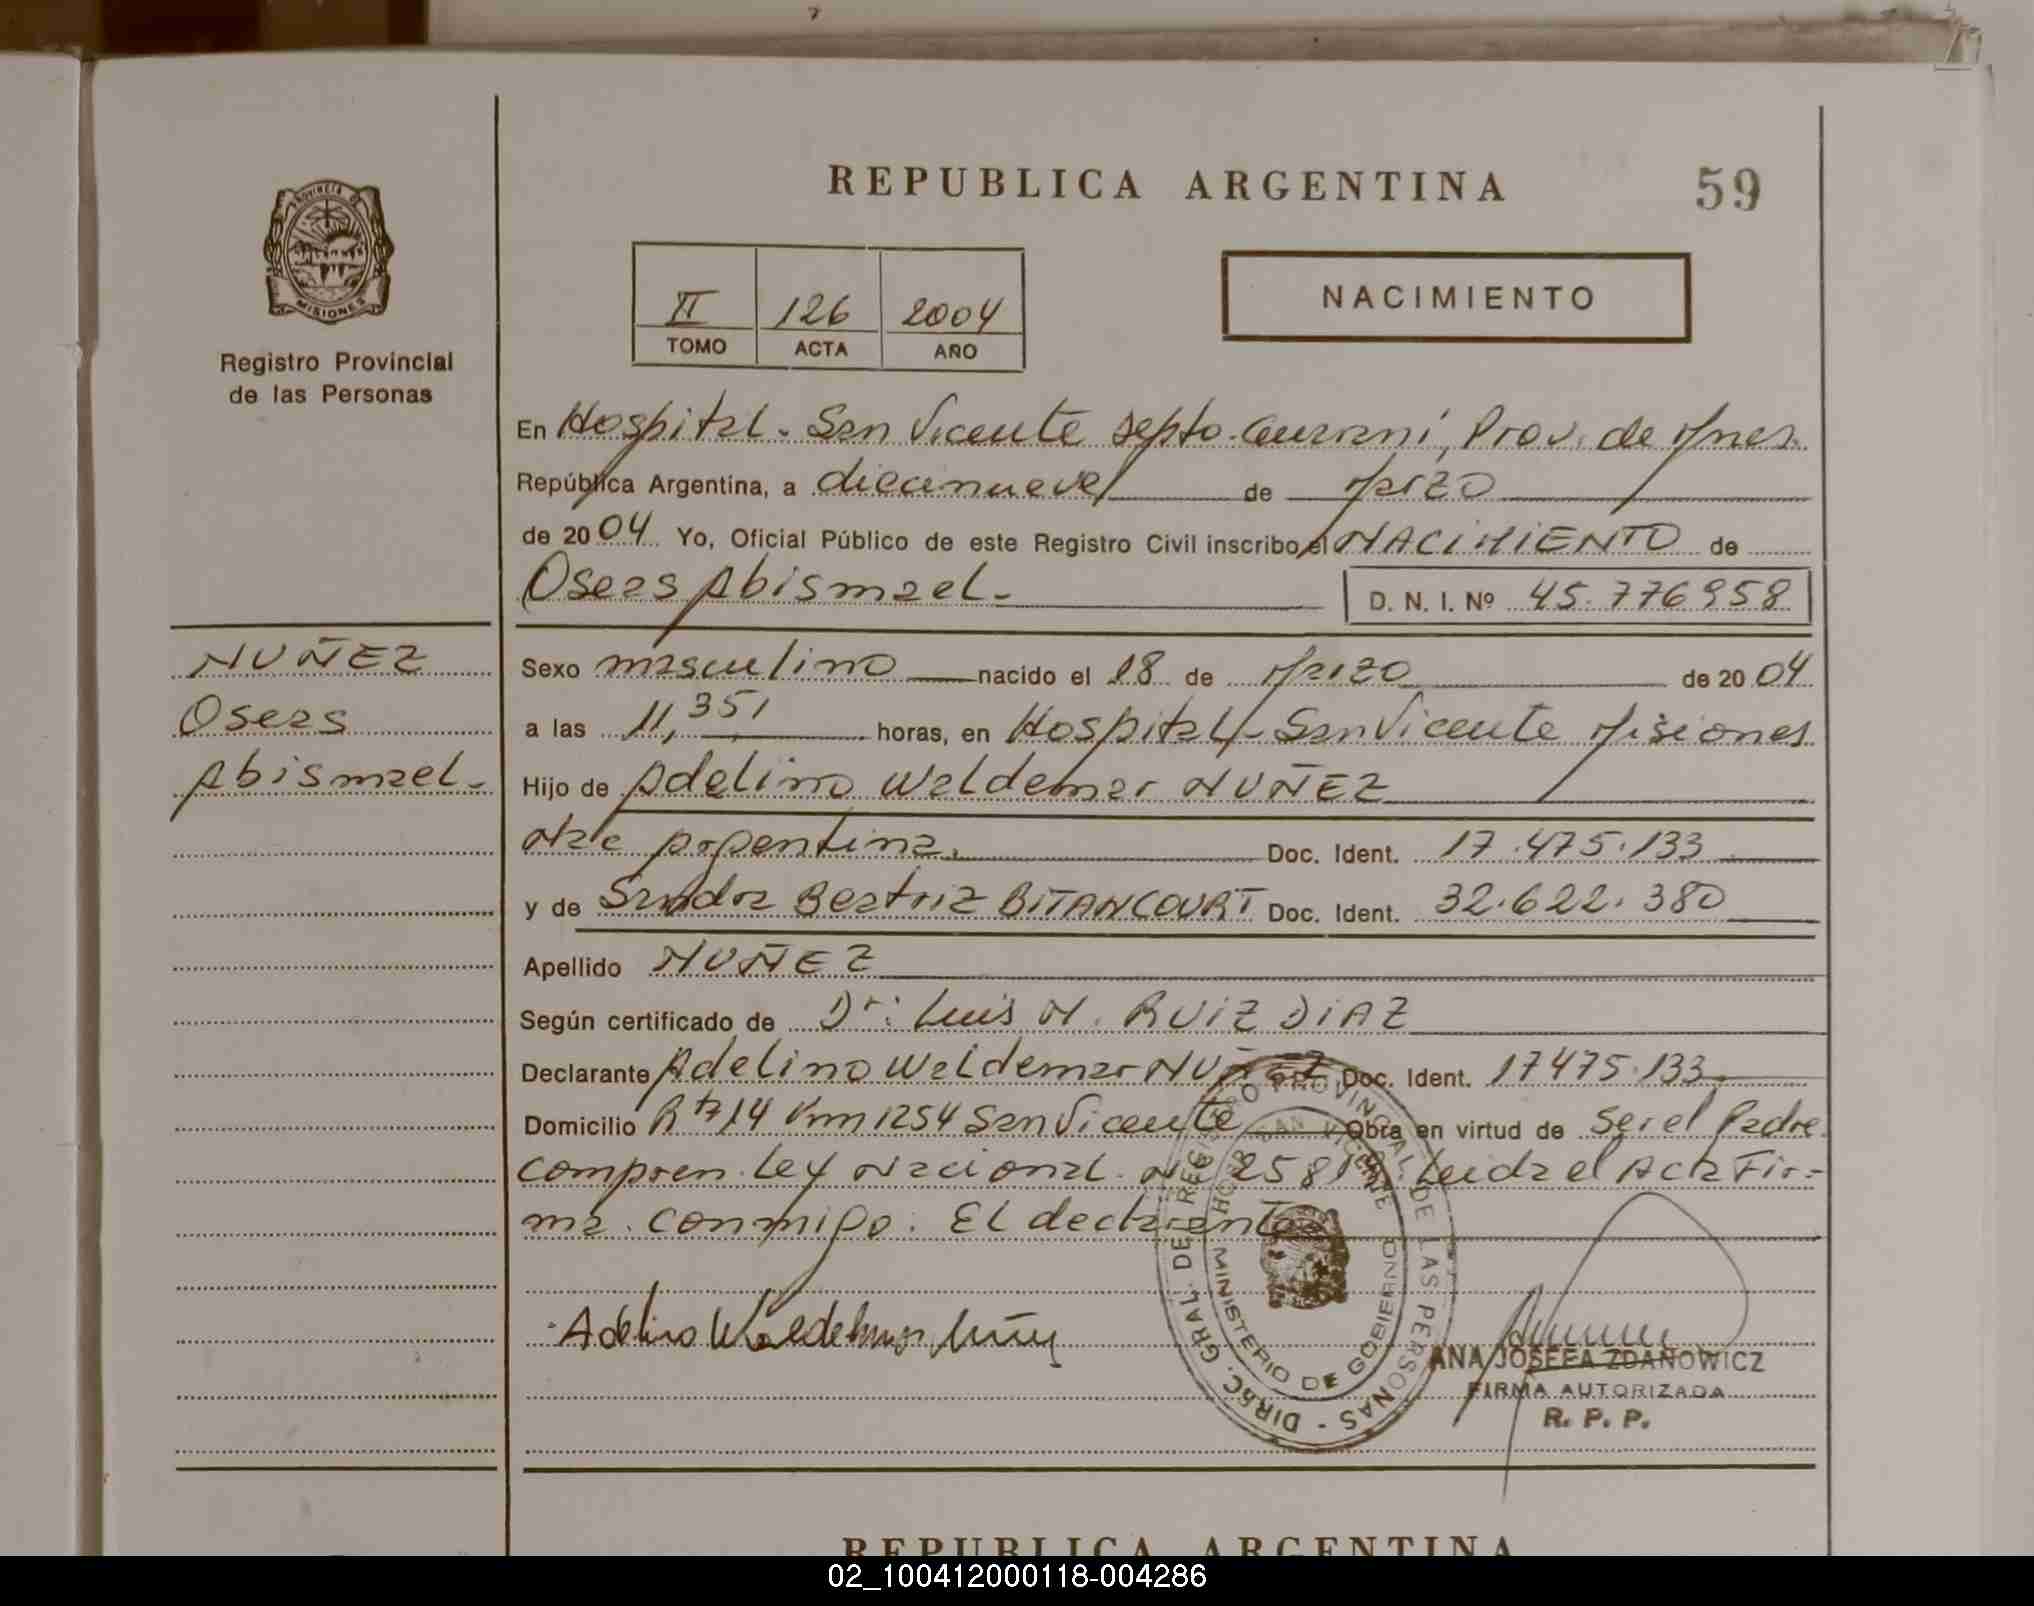 REPUBLICA ARGENTINA
59
PROVINCIA DE MISIONES
Registro Provincial
de las Personas
II 126 2004
TOMO ACTA AÑO
NACIMIENTO
En Hospital - San Vicente Depto. Guarani, Prov. de Mnes.
República Argentina, a diecinueve de Marzo
de 2004 Yo, Oficial Público de este Registro Civil inscribo el NACIMIENTO de
Oseas Abismael.-
D. N. I. Nº 45.776958
NUÑEZ
Oseas
Abismael.-
Sexo masculino nacido el 18 de Marzo de 2004
a las 11,35 horas, en Hospital - San Vicente Misiones
Hijo de Adelino Waldemar NUÑEZ
Nac Argentina. Doc. Ident. 17.475.133
y de Sandra Beatriz BITANCOURT Doc. Ident. 32.622.380
Apellido NUÑEZ
Según certificado de Dr: Luis N. RUIZ DIAZ
Declarante Adelino Waldemar NUÑEZ Doc. Ident. 17475.133
Domicilio Rta 14 Km 1254 San Vicente Obra en virtud de Ser el Padre
Compren. Ley Nacional. Nº 25819. Leida el Acta Fir-
ma. Conmigo. El declarante
Adelino Waldemar Núñez
DIREC. GRAL. DE REGISTRO PROVINCIAL DE LAS PERSONAS
MINISTERIO DE GOBIERNO
SAN VICENTE
ANA JOSEFA ZDANOWICZ
FIRMA AUTORIZADA
R. P. P.
REPUBLICA ARGENTINA
02_100412000118-004286